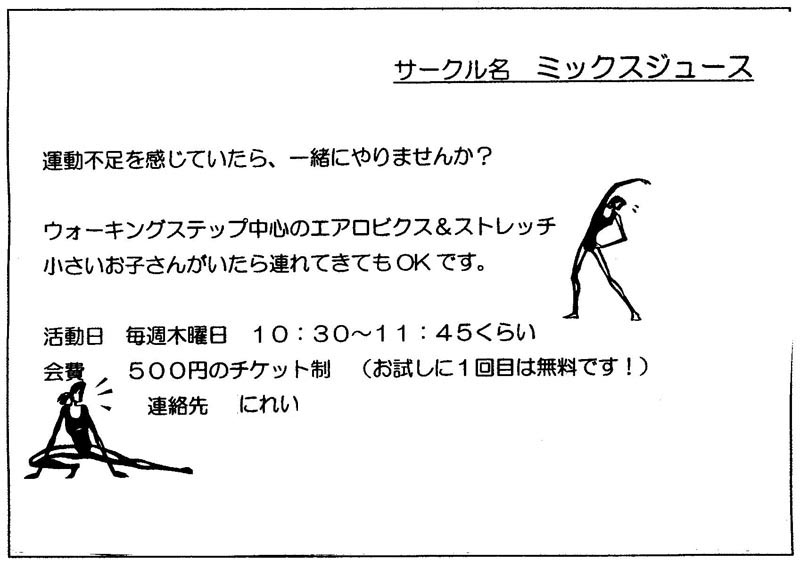 サークル名　ミックスジュース
運動不足を感じていたら、一緒にやりませんか？
ウォーキングステップ中心のエアロビクス＆ストレッチ
小さいお子さんがいたら連れてきてもOKです。
活動日　毎週木曜日　１０：３０～１１：４５くらい
会費　　５００円のチケット制　（お試しに１回目は無料です！）
連絡先　にれい